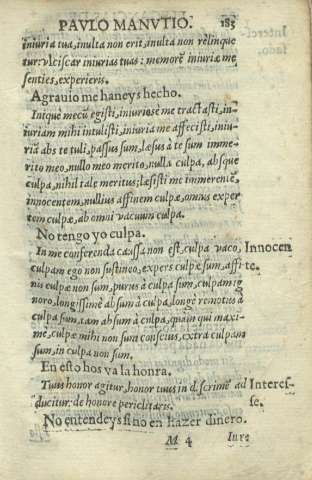 PAVLO MANVTIO. 185
iniuria tua, inulta non erit, inulta non relinque
tur: vlciscar iniurias tuas: memorẽ iniuriæ me
senties, experieris.
Agrauio me haneys hecho.
Inique mecũ egisti, iniuriose me tractasti, in-
iuriam mihi intulisti, iniuria me affecisti, iniu-
riã abs te tuli, passus sum, læsus à te sum imme-
rito meo, nullo meo merito, nulla culpa, absque
culpa, nihil tale meritus; læsisti me immerentẽ,
innocentem, nullius affinem culpæ, omnis exper
tem culpæ, ab omni vacuum culpa.
No tengo yo culpa.
In me conferenda caussa non est, culpa vaco, Innocen
culpam ego non sustineo, expers culpæ sum, affi- te.
nis culpæ non sum, purus à culpa sum, culpam ig
noro, longissimè absum à culpa, longè remotus à
culpa sum, tam absum à culpa, quàm qui maxi-
me, culpæ mihi non sum conscius, extra culpam
sum, in culpa non sum.
En esto hos va la honra.
Tuus honor agitur, honor tuus in discrimẽ ad Interes-
ducitur: de honore periclitaris. se.
No entendeys si no en hazer dinero.
M 4 Iure